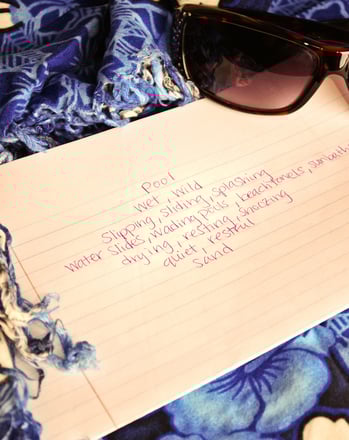 Pool
wet, wild
slipping, sliding, splashing
water slides, wading pools, beach towels, sunbathi
drying, resting, snoozing
quiet, restful
sand